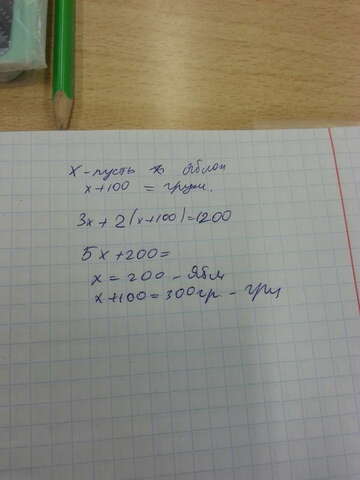 x - пусть яблок
x+100 = груши.
3x + 2(x+100)=1200
5x+200=
x = 200 - Ябл
x+100=300гр - груш